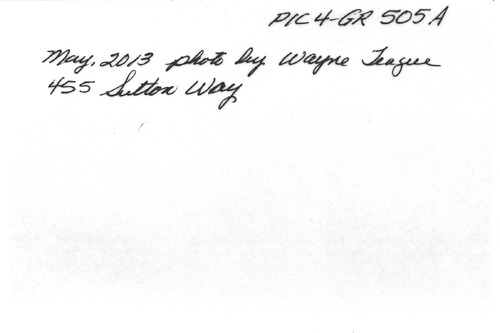 PIC 4-GR 505A
May, 2013 photo by Wayne Teague
455 Sutton Way